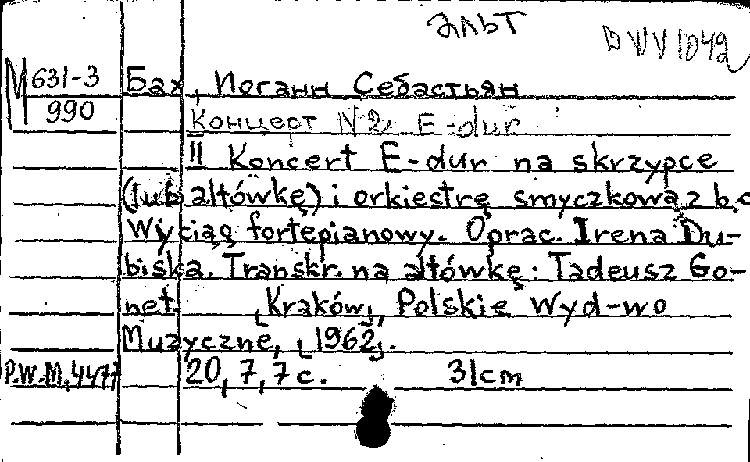 альт
BWV 1042
М 631-3
990
Бах, Иоганн Себастьян
Концерт №2, E-dur
II Koncert E-dur na skrzypce
(lub altówkę) i orkiestrę smyczkową z b.c
Wyciąg fortepianowy. Oprac. Irena Du-
biska. Transkr. na altówkę: Tadeusz Go-
net. [Kraków], Polskie Wyd-wo
Muzyczne, [1962].
P.W.M. 4477
20, 7, 7 с. 31cm